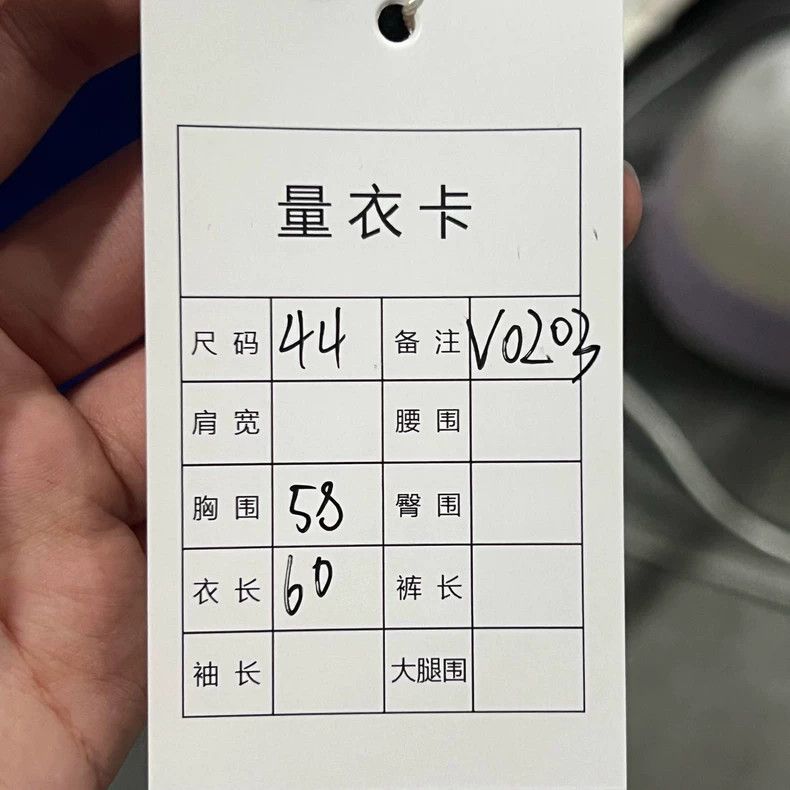 量衣卡
尺码 44 备注 V0203
肩宽 腰围
胸围 58 臀围
衣长 60 裤长
袖长 大腿围